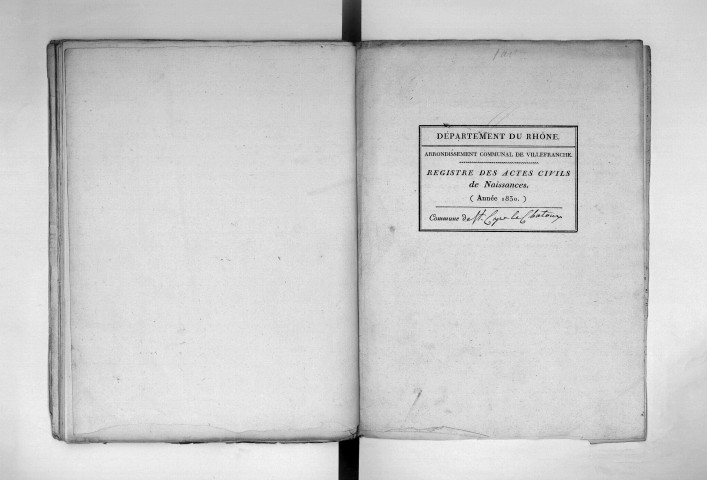 DÉPARTEMENT DU RHÔNE.
ARRONDISSEMENT COMMUNAL DE VILLEFRANCHE.
REGISTRE DES ACTES CIVILS
de Naissances.
( Année 1830. )
Commune de St. Cyr le Chatoux